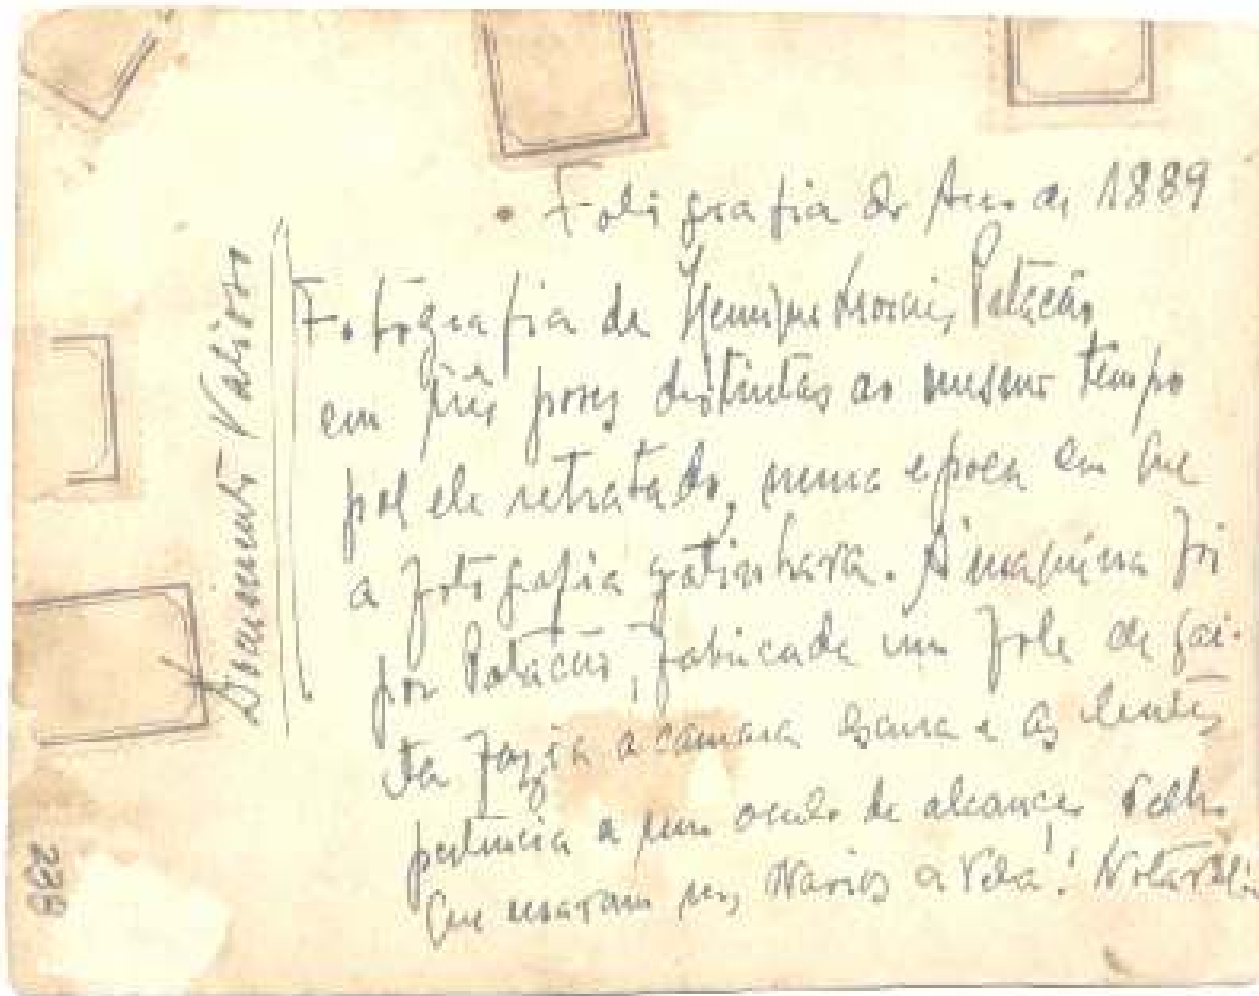 Fotografia do Ano de 1889
Fotografia de Henrique Patacão
em três poses distintas ao mesmo tempo
por ele retratado, numa epoca em que
a fotografia gatinhava. A maquina foi
por Patacão, fabricada um fole de gai-
ta fazia a camara escura e as lentes
pertencia a um oculo de alcance velho
que usavam nos Navios a Vela! Notavel
Documento Valioso